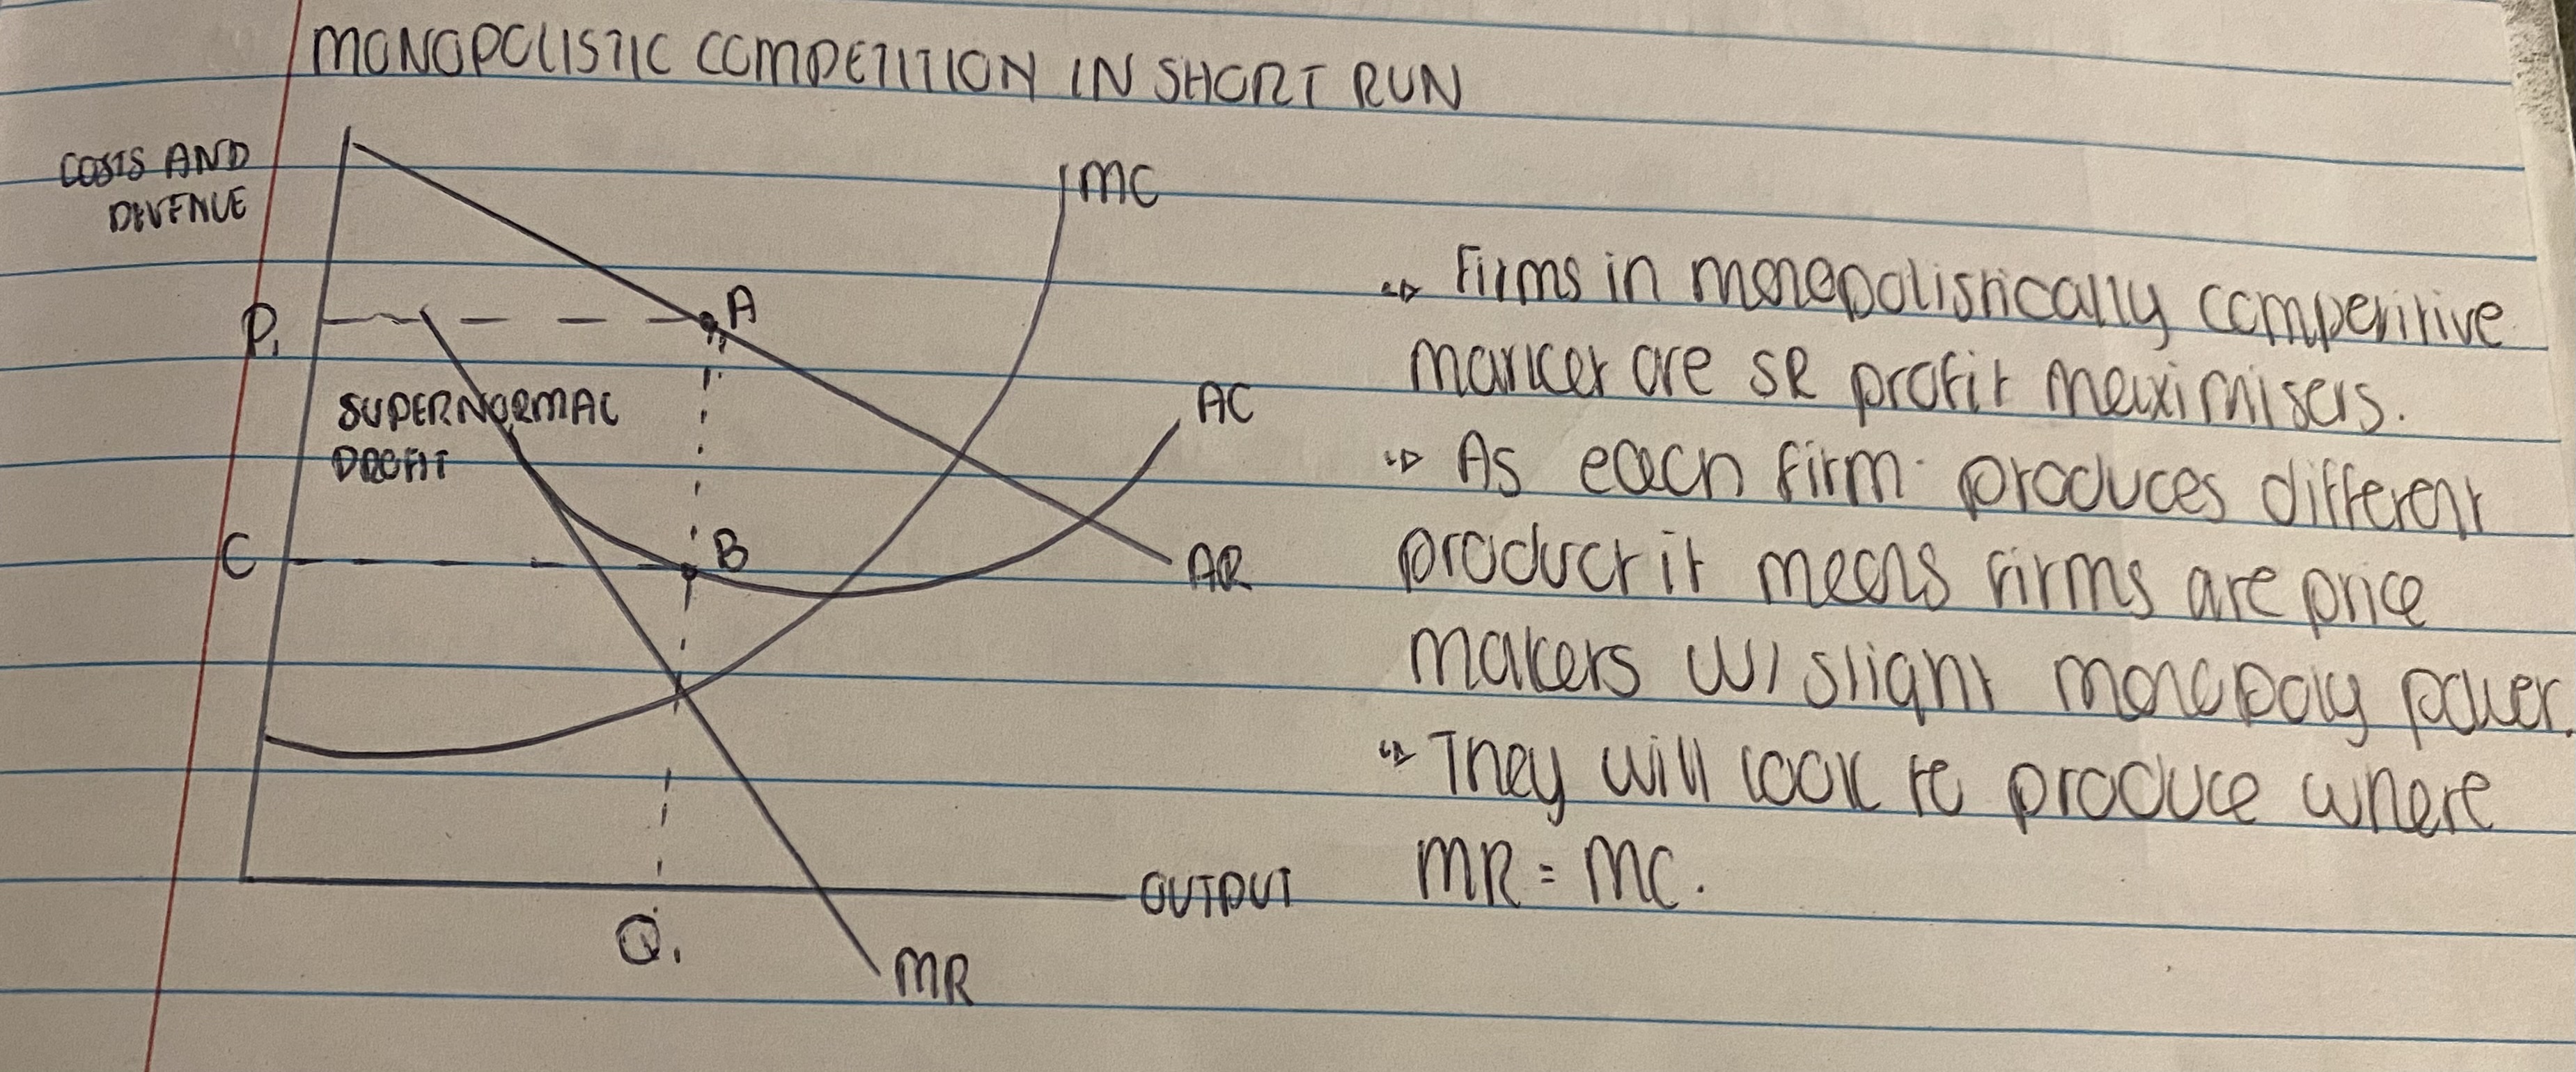 MONOPOLISTIC COMPETITION IN SHORT RUN
COSTS AND
REVENUE
MC
P1
A
SUPERNORMAL
PROFIT
AC
C
B
AR
OUTPUT
Q1
MR
↳ Firms in monopolistically competitive
market are SR profit maximisers.
↳ As each firm produces different
product it means firms are price
makers w/ slight monopoly power.
↳ They will look to produce where
MR = MC.